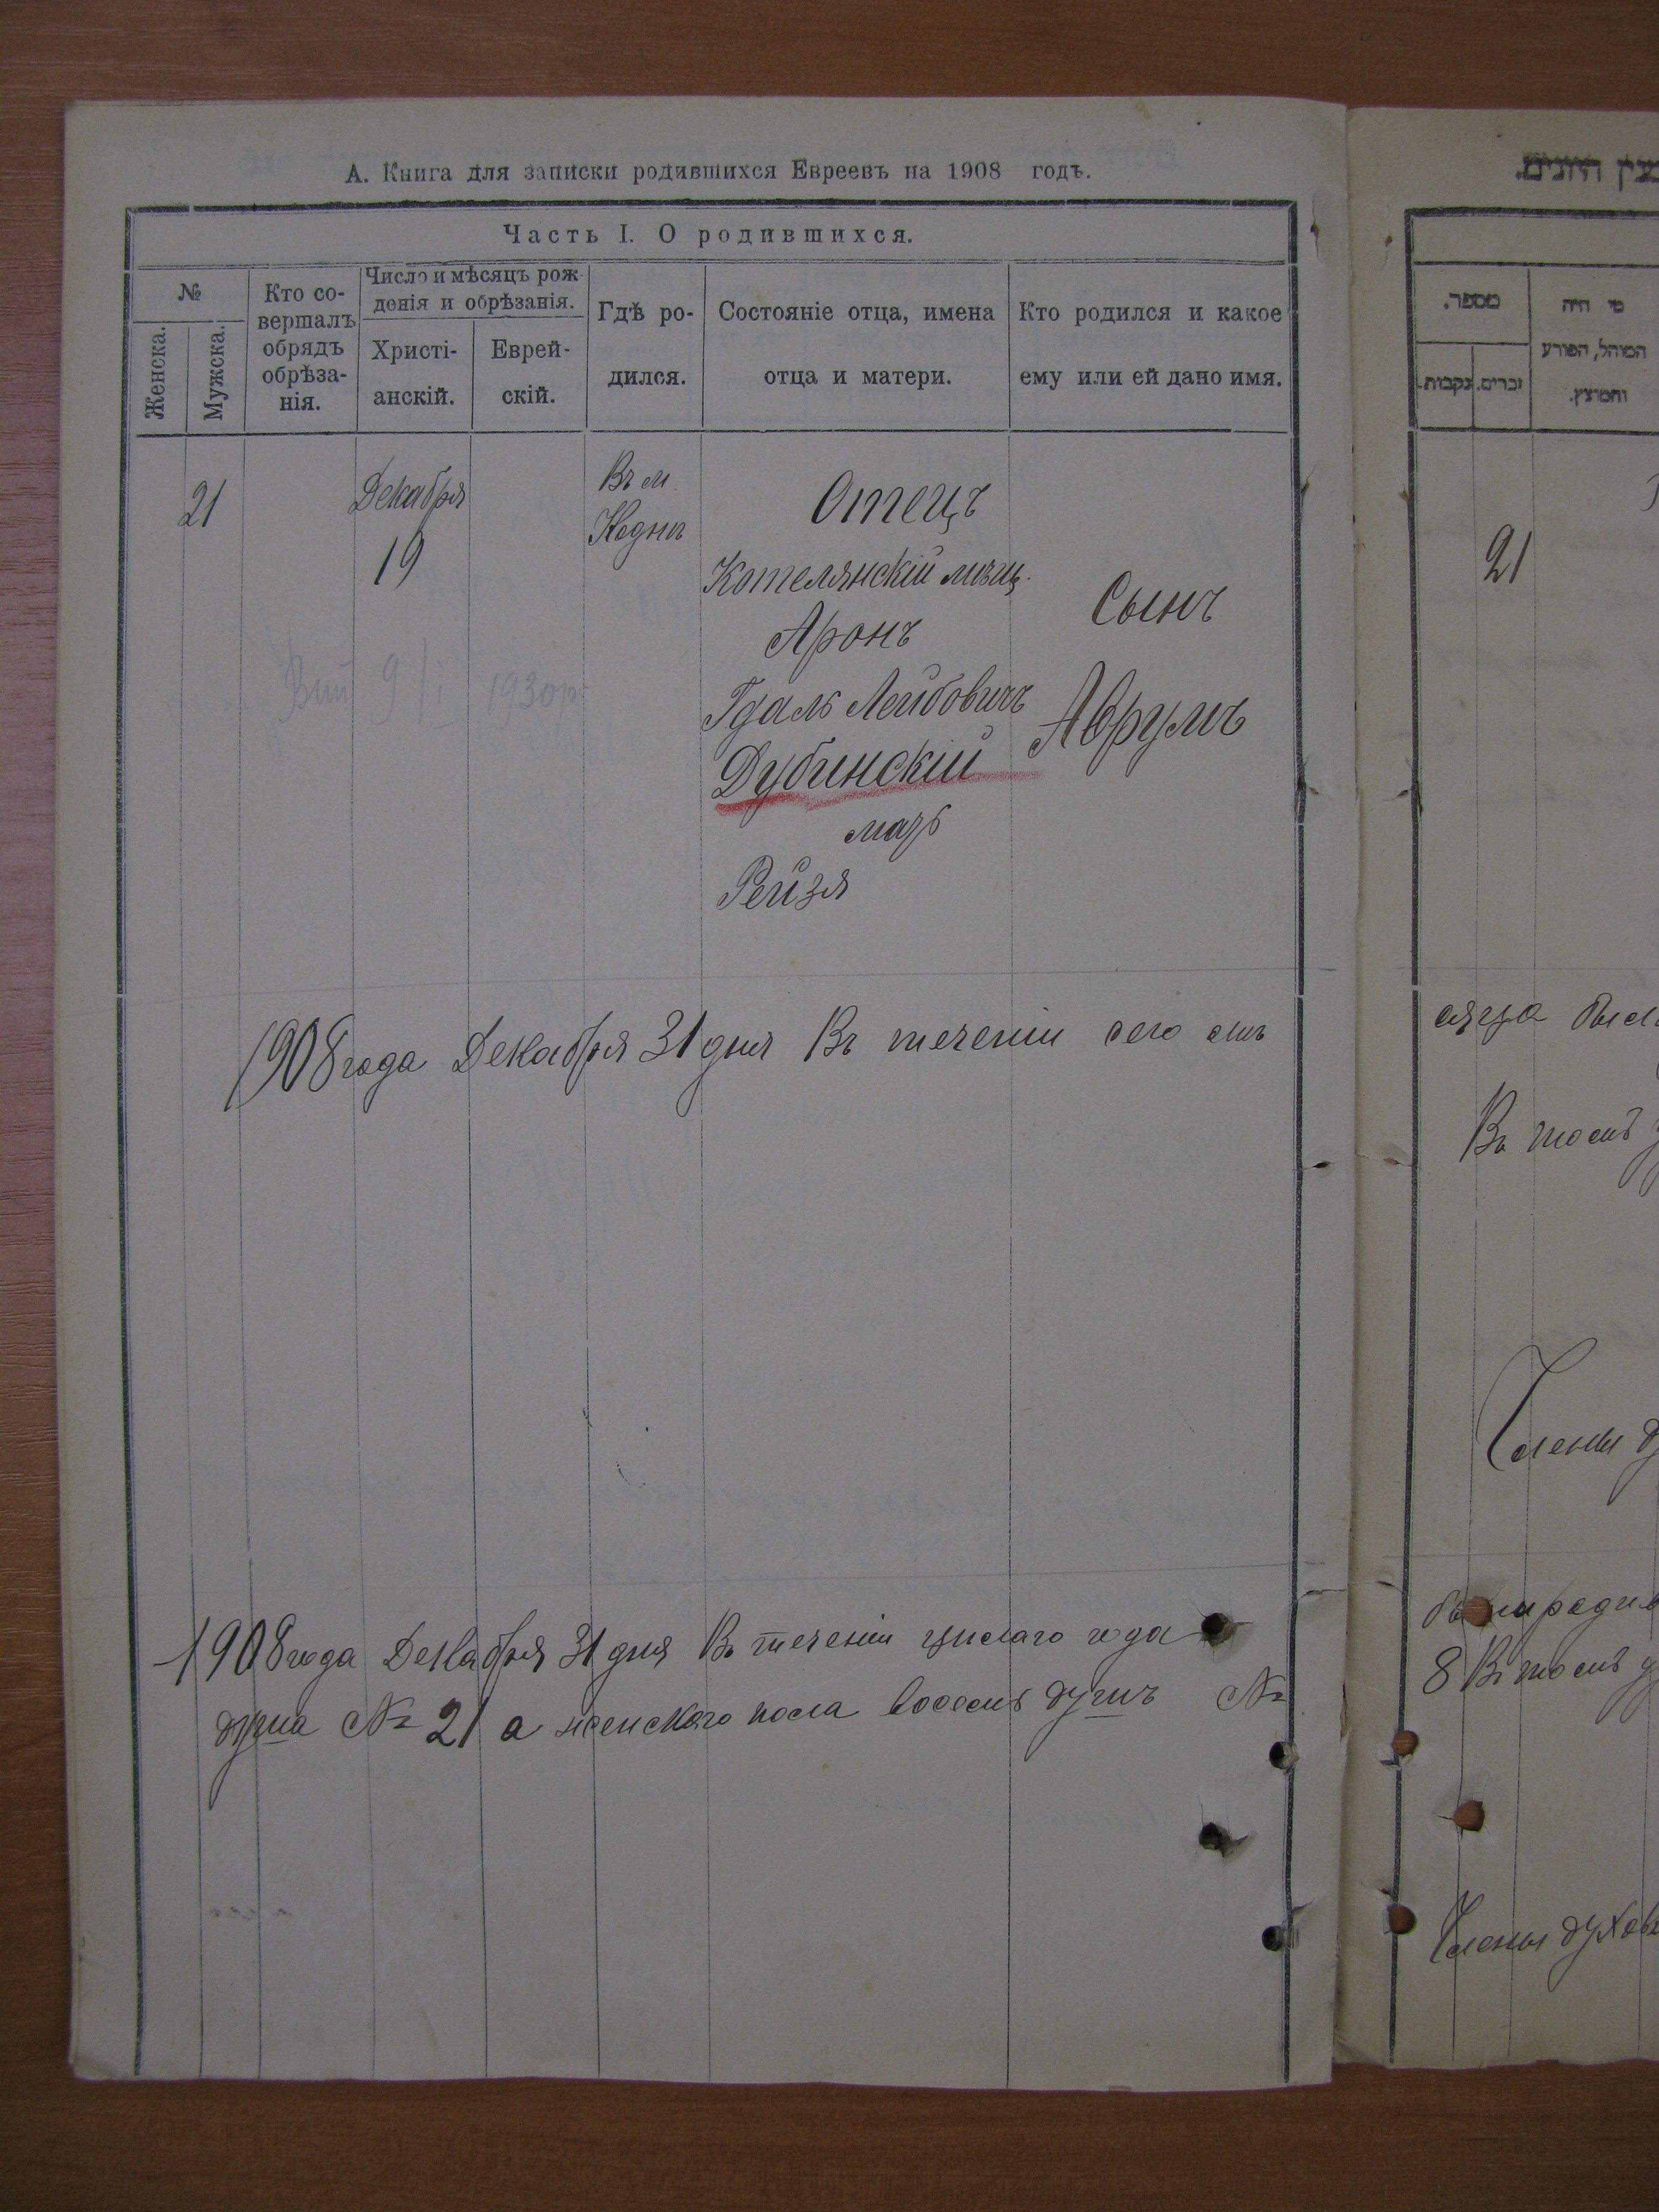 А. Книга для записки родившихся Евреевъ на 1908 годъ.
Часть I. О родившихся.
№
Женска.
Мужска.
Кто со-
вершалъ
обрядъ
обрѣза-
нія.
Число и мѣсяцъ рож-
денія и обрѣзанія.
Христі-
анскій.
Еврей-
скій.
Гдѣ ро-
дился.
Состояніе отца, имена
отца и матери.
Кто родился и какое
ему или ей дано имя.
21
Декабря
19
Въ м.
Отецъ
Котелянскій мѣщ.
Аронъ
Гдаль Лейбовичъ
Дубинскій
мать
Рейзя
Сынъ
Аврумъ
9/I 1930р
1908 года Декабря 31 дня Въ теченіи сего
1908 года Декабря 31 дня Въ теченіи цѣлаго года
душа № 21 а женскаго пола восемь душъ №
מספר.
זכרים.
נקבות.
מי היה
המוהל, הפורע
והמוצץ.
21
сяца
Въ томъ
Члены
8 Въ томъ
Члены духов